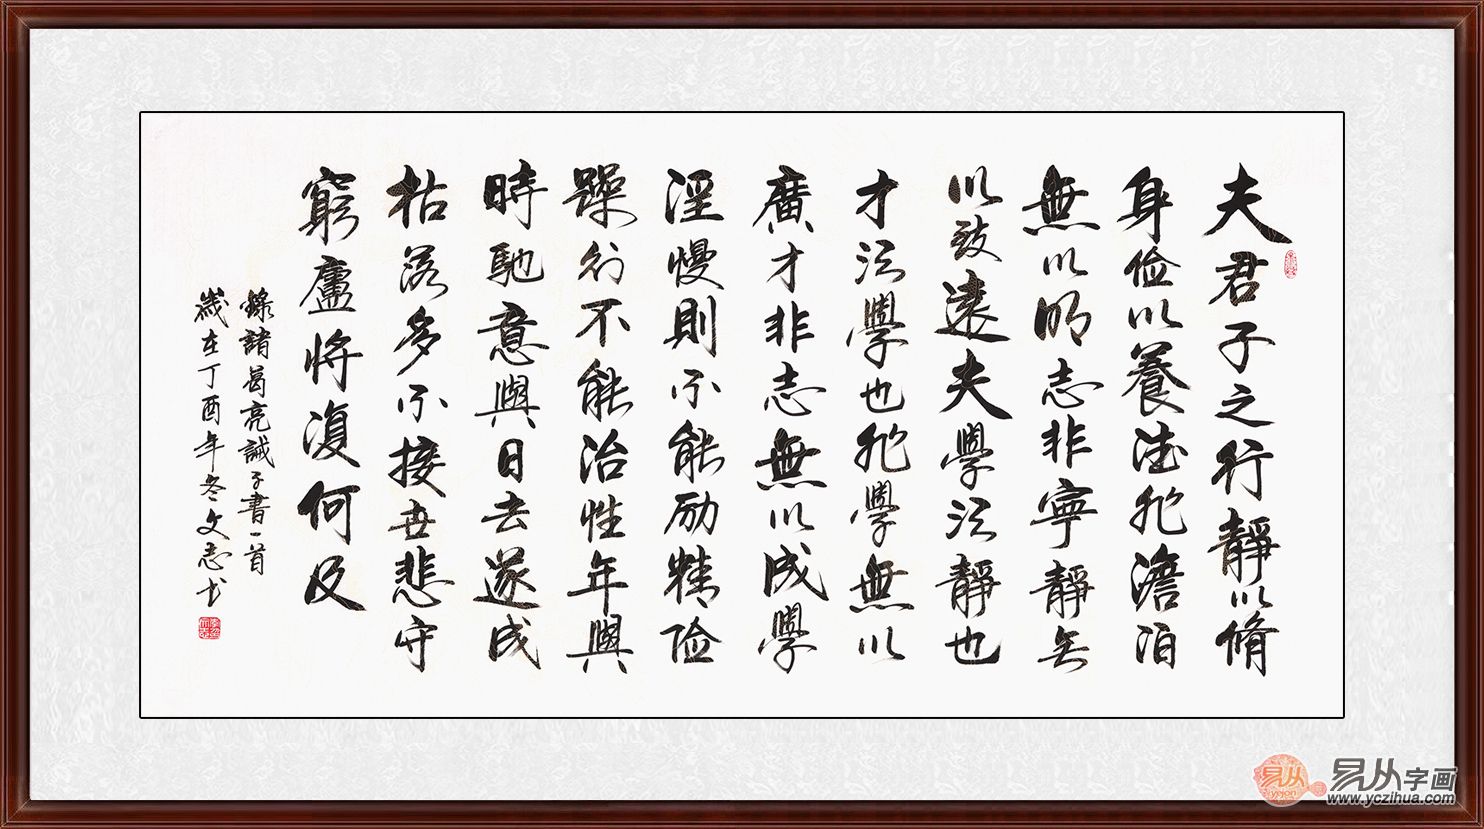 夫君子之行靜以脩
身俭以養德非澹泊
無以明志非寧靜无
以致遠夫學須靜也
才須學也非學無以
廣才非志無以成學
淫慢則不能励精险
躁则不能治性年與
時馳意與日去遂成
枯落多不接世悲守
窮廬將復何及
錄諸葛亮誡子書一首
歲在丁酉年冬文志书
易从
易从字画
www.yczihua.com